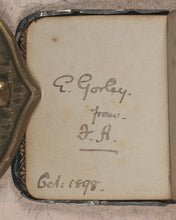 E. Gorley.
from
F. A.
Oct: 1898.